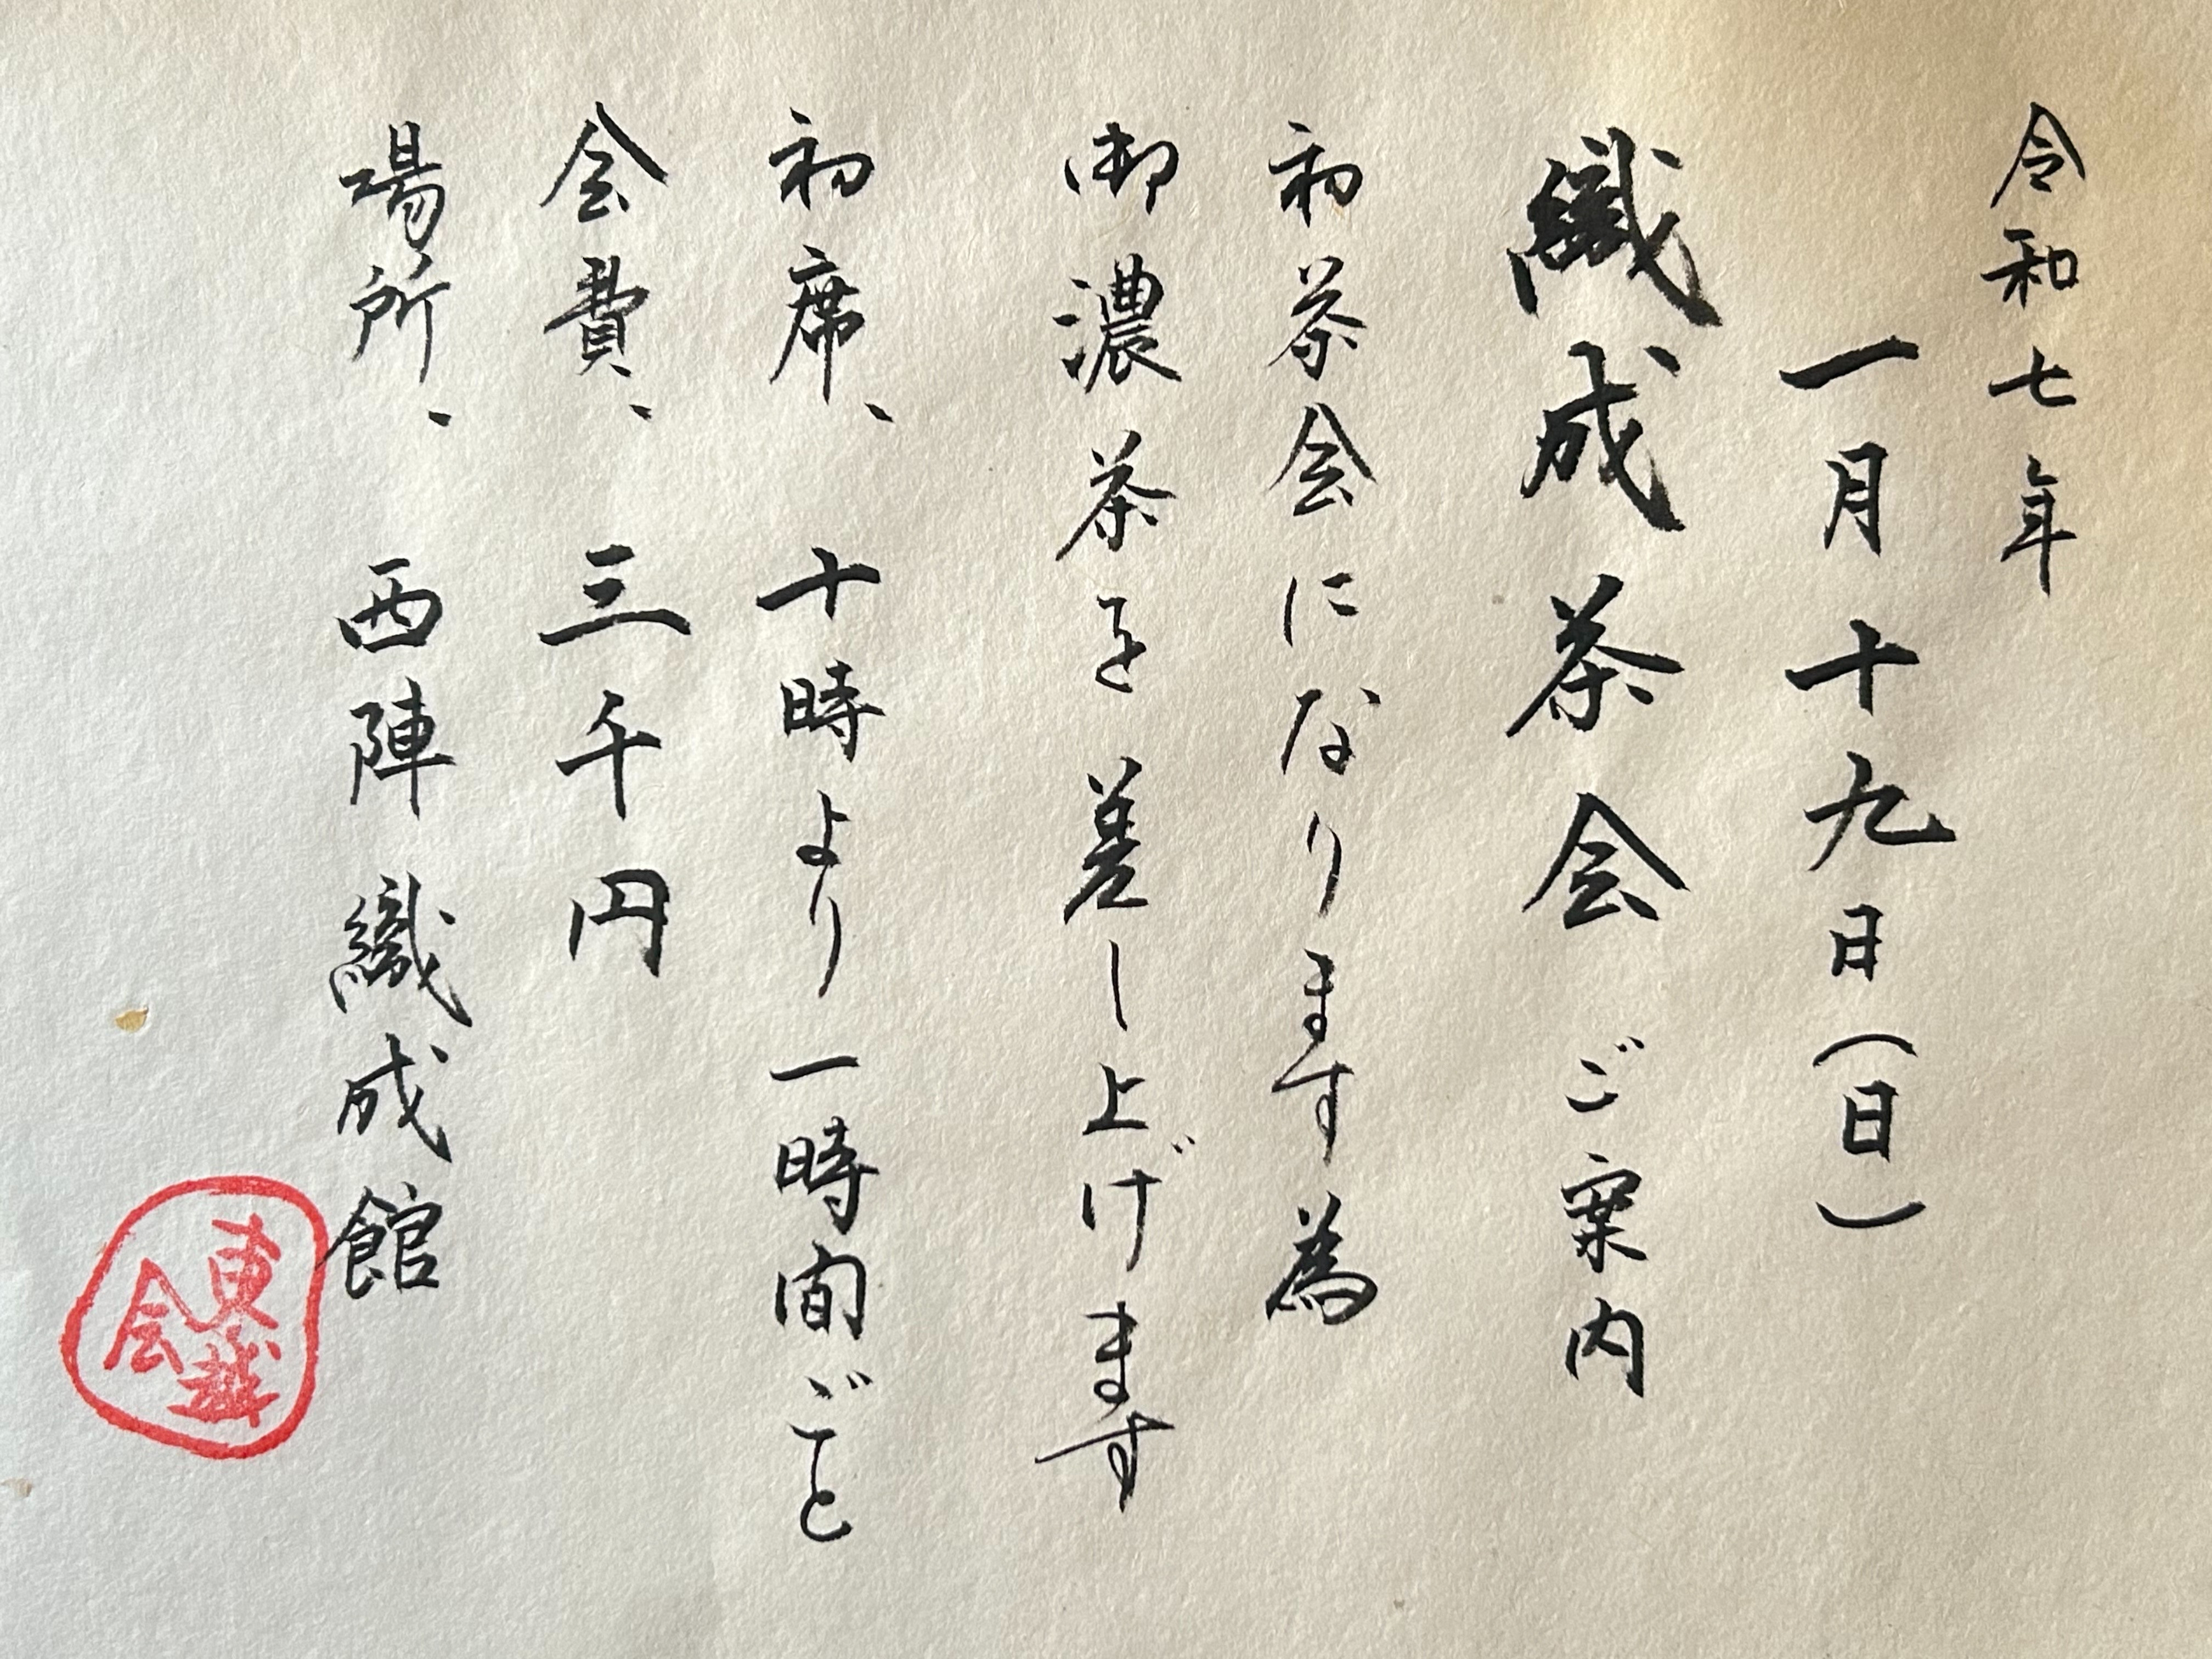 令和七年
一月十九日(日)
織成茶会 ご案内
初茶会になります為
御濃茶を差し上げます
初席、 十時より一時間ごと
会費、 三千円
場所、 西陣織成館
東越
会